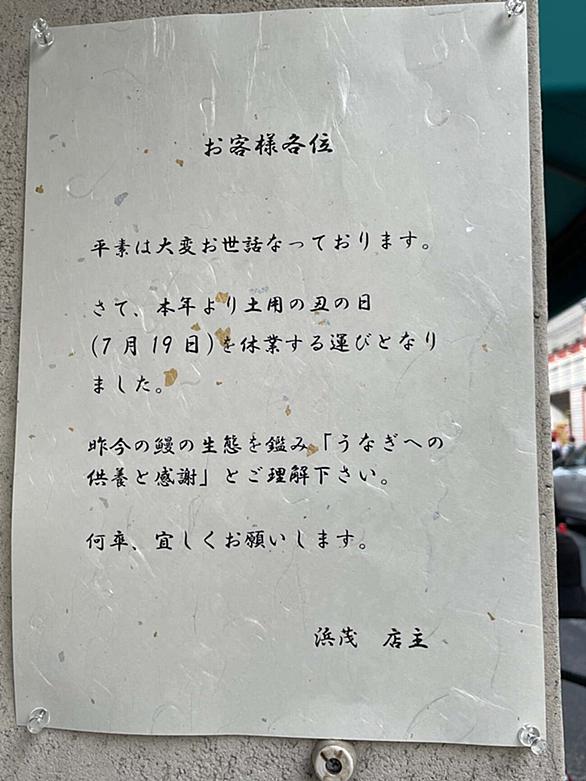 お客様各位
平素は大変お世話なっております。
さて、本年より土用の丑の日
(7月19日)を休業する運びとなり
ました。
昨今の鰻の生態を鑑み「うなぎへの
供養と感謝」とご理解下さい。
何卒、宜しくお願いします。
浜茂　店主